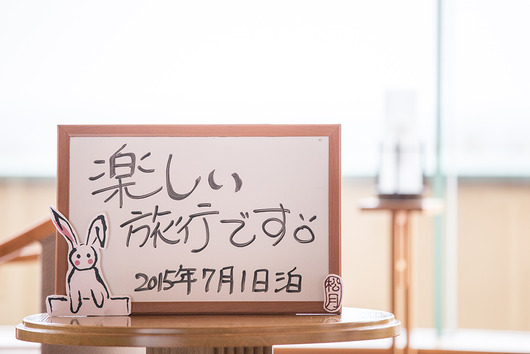 楽しい
旅行です。
2015年7月1日泊
松月